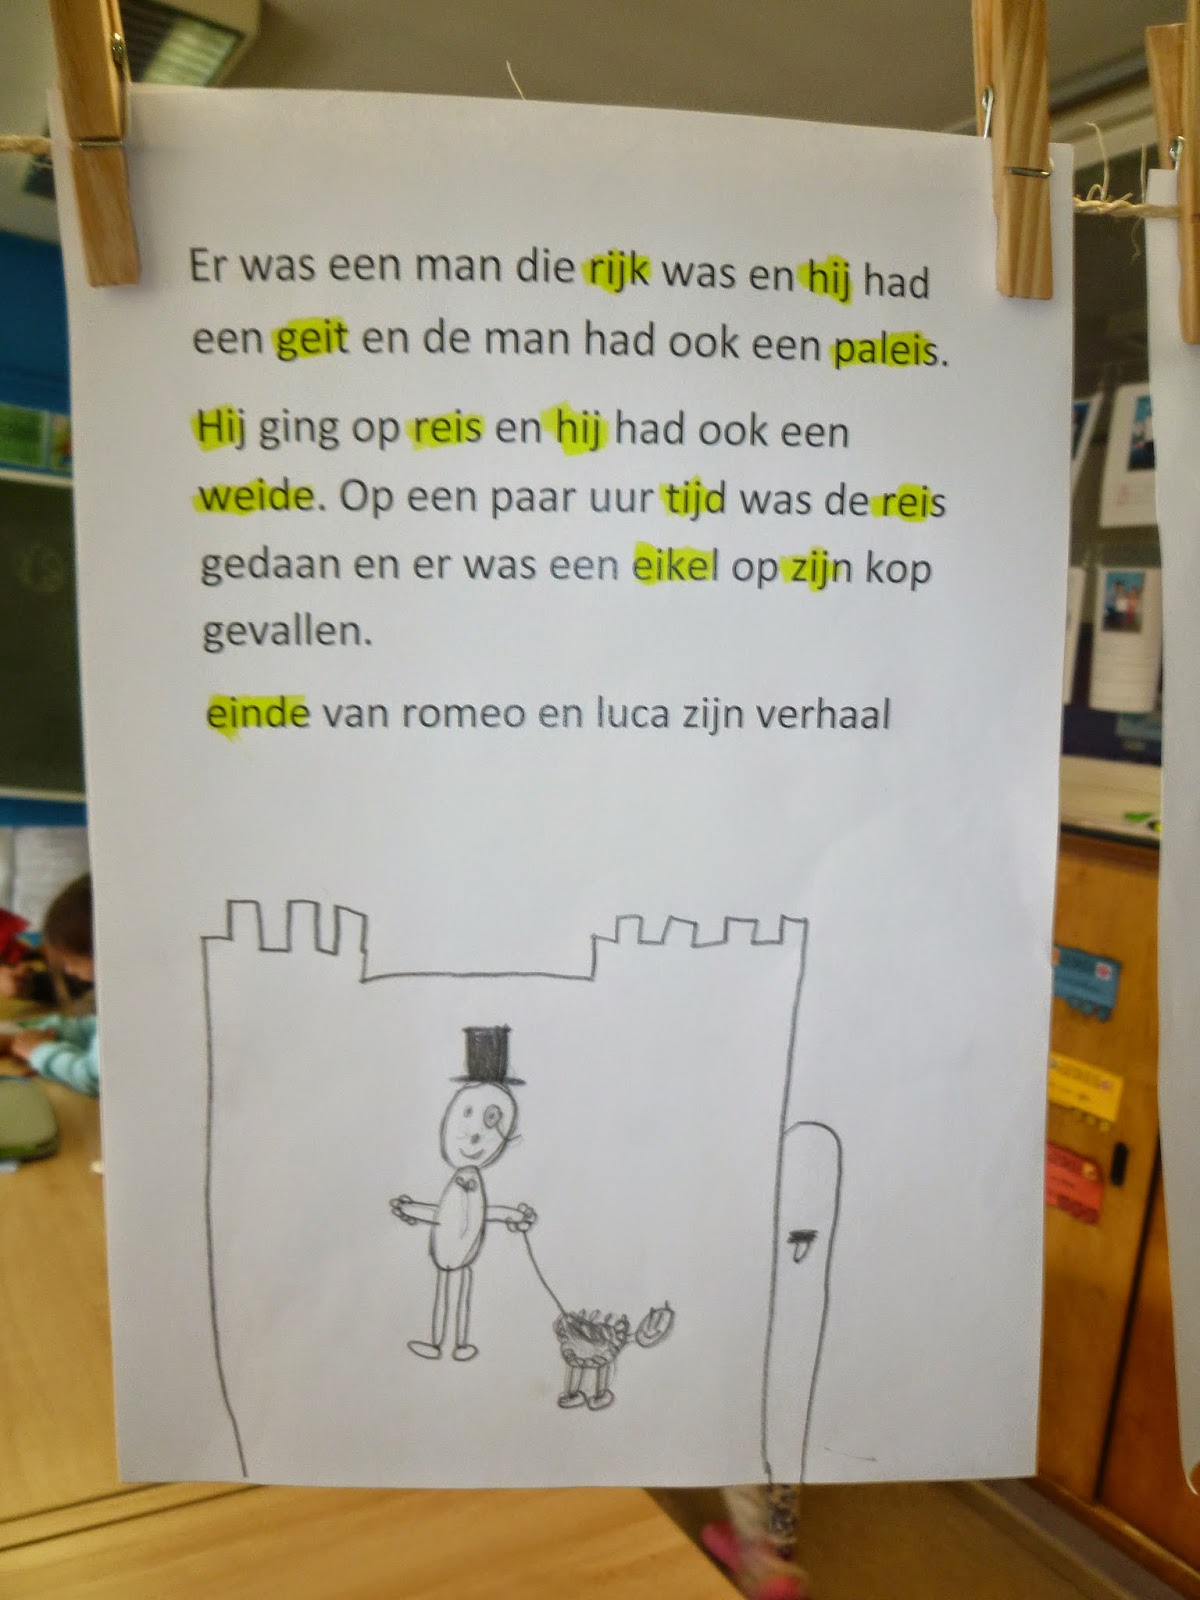 Er was een man die rijk was en hij had
een geit en de man had ook een paleis.
Hij ging op reis en hij had ook een
weide. Op een paar uur tijd was de reis
gedaan en er was een eikel op zijn kop
gevallen.
einde van romeo en luca zijn verhaal